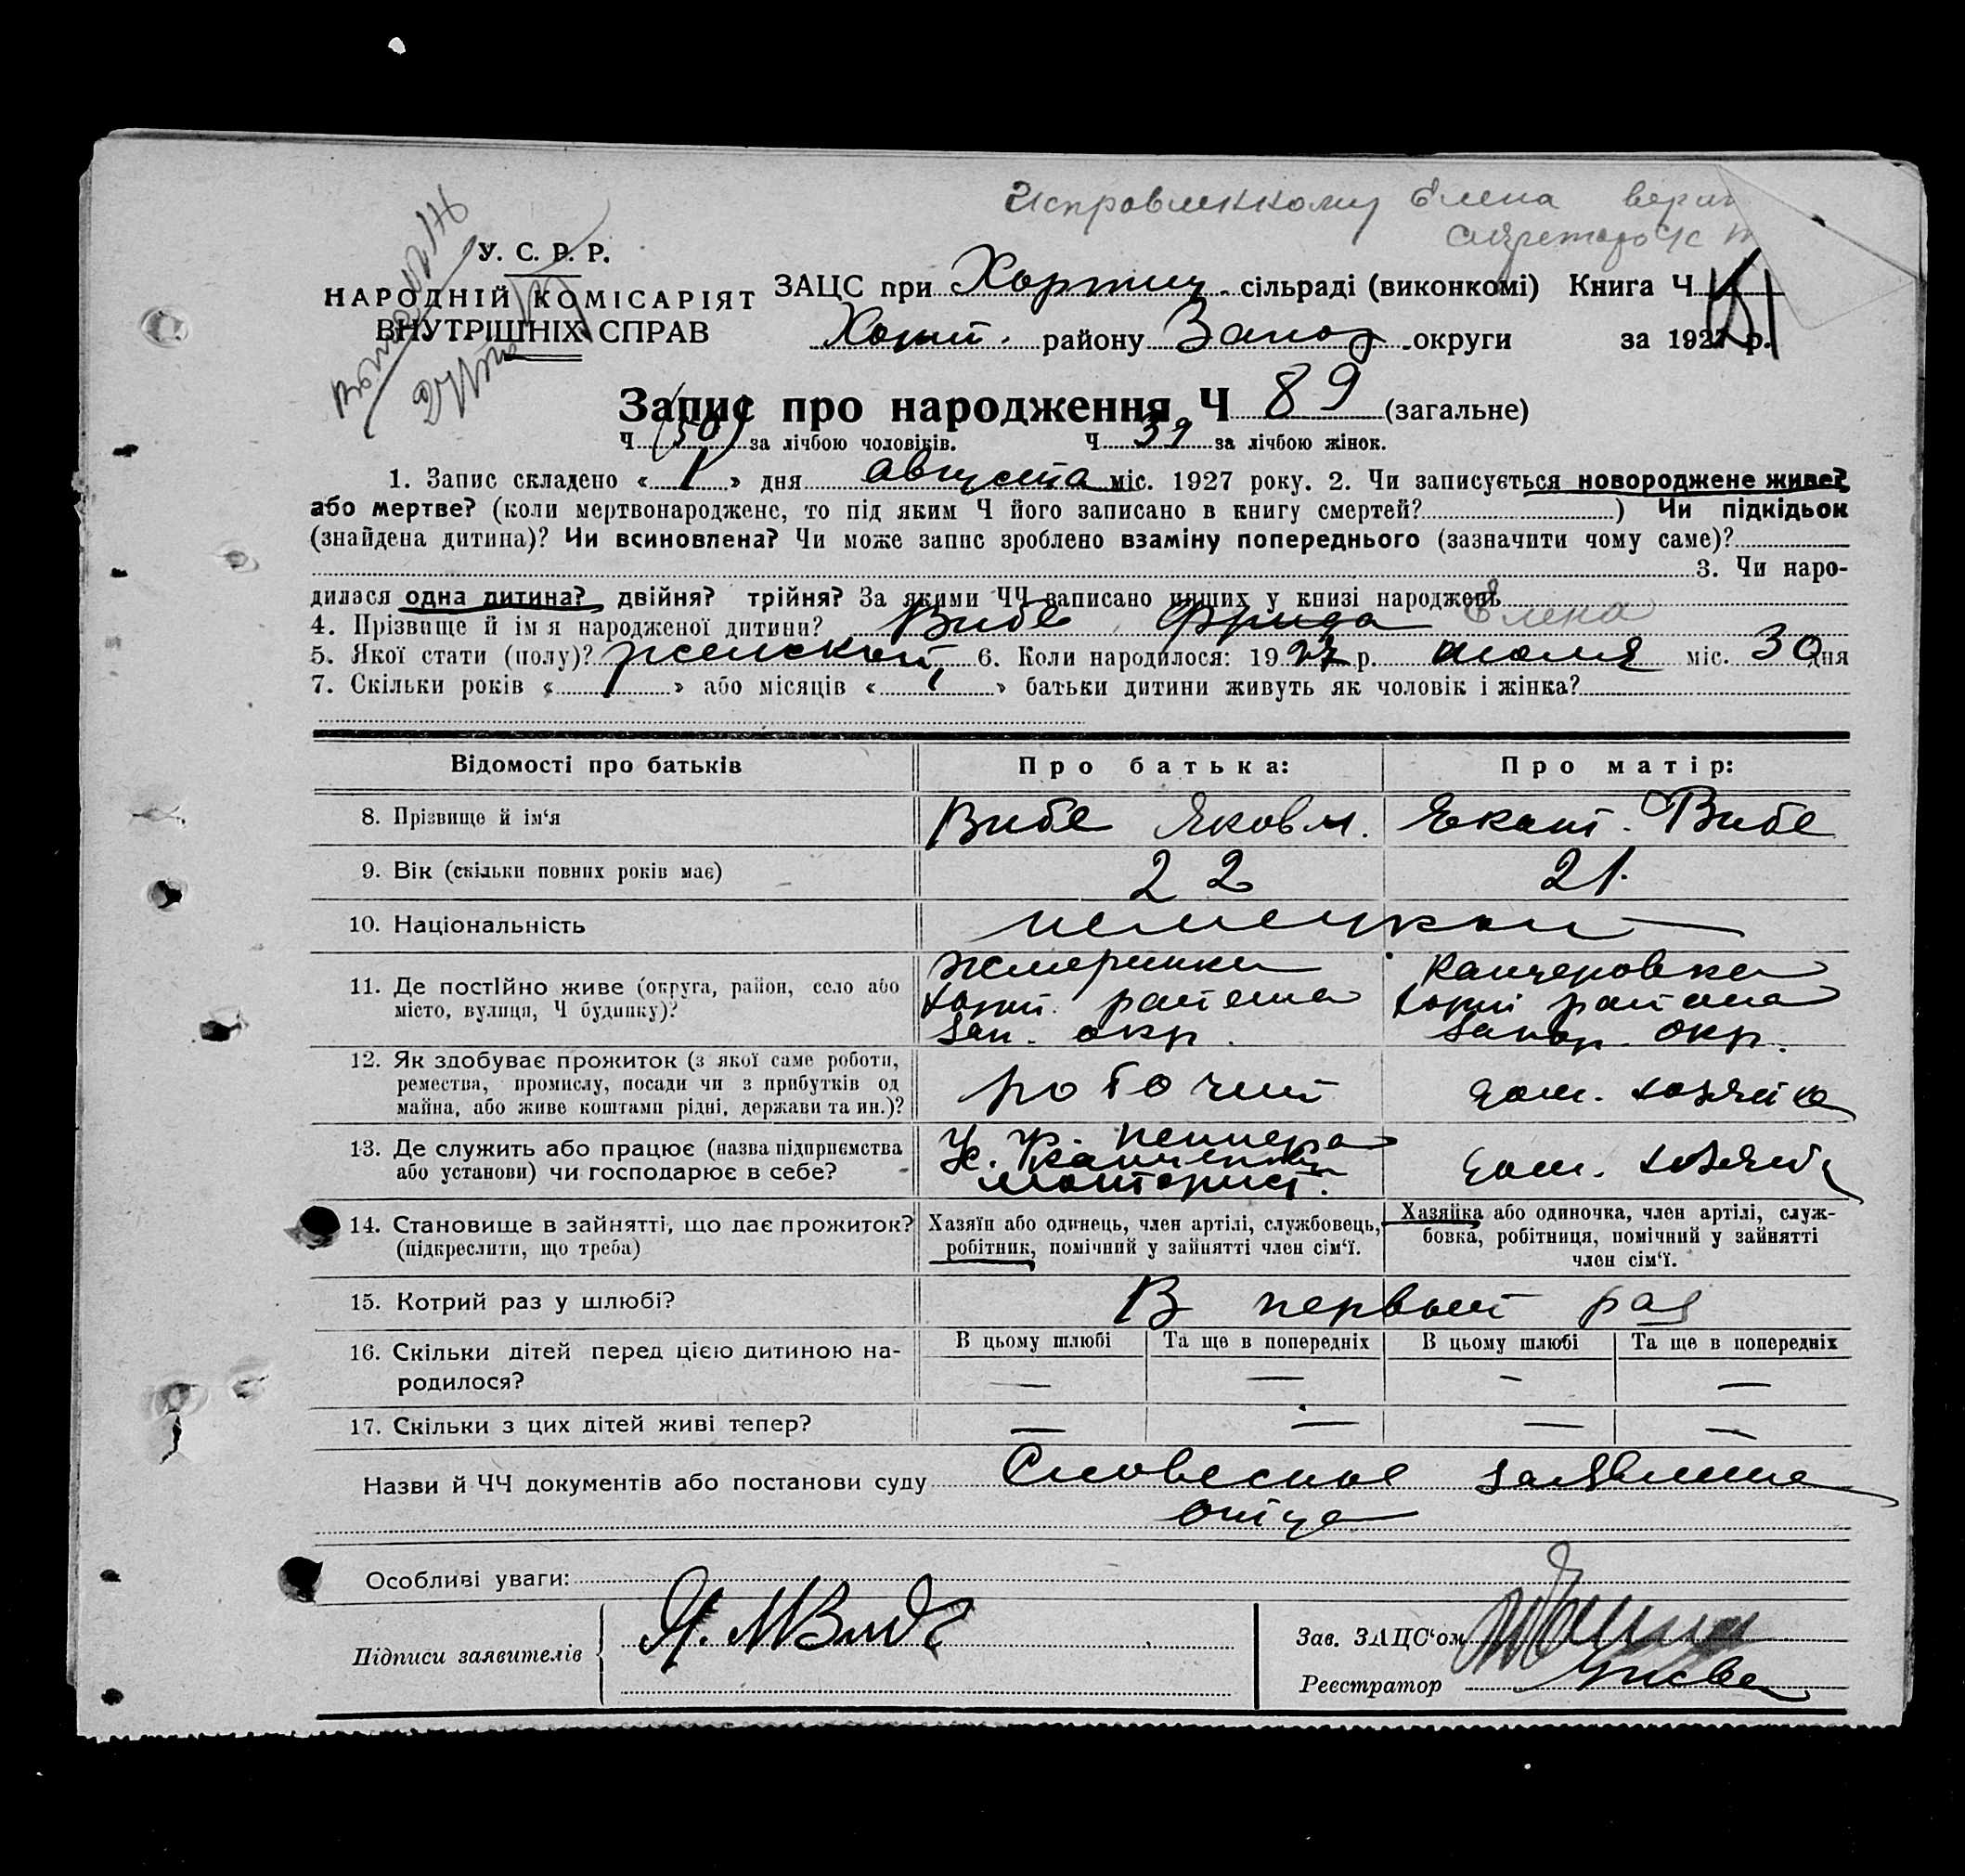 Исправленному Елена
У. С. Р. Р.
НАРОДНІЙ КОМІСАРІЯТ
ВНУТРІШНІХ СПРАВ
ЗАЦС при Хортиц. сільраді (виконкомі) Книга Ч
Хорт. району Запор округи за 1927 р.
Запис про народження Ч 89 (загальне)
Ч (50) за лічбою чоловіків. Ч 39 за лічбою жінок.
1. Запис складено « 1 » дня августа міс. 1927 року. 2. Чи записується новороджене живе?
або мертве? (коли мертвонароджене, то під яким Ч його записано в книгу смертей? ) Чи підкідьок
(знайдена дитина)? Чи всиновлена? Чи може запис зроблено взаміну попереднього (зазначити чому саме)?
3. Чи наро-
дилася одна дитина? двійня? трійня? За якими ЧЧ записано инших у книзі народжень
4. Прізвище й ім я народженої дитини? Вибе Фрида Елена
5. Якої стати (полу)? женский 6. Коли народилося: 1927 р. июля міс. 30 дня
7. Скільки років « 1 » або місяців « » батьки дитини живуть як чоловік і жінка?
Відомості про батьків Про батька: Про матір:
8. Прізвище й ім‘я Вибе Яков М. Екат. Вибе
9. Вік (скільки повних років має) 22 21.
10. Національність немецкой
11. Де постійно живе (округа, район, село або
місто, вулиця, Ч будинку)?
Жмеринка
Хорт. района
Зап. окр.
Канцеровка
Хорт района
Запор. окр.
12. Як здобуває прожиток (з якої саме роботи,
ремества, промислу, посади чи з прибутків од
майна, або живе коштами рідні, держави та ин.)?
робочий
дом. хозяйка
13. Де служить або працює (назва підприємства
або установи) чи господарює в себе?
моторист.
дом. хозяй
14. Становище в зайнятті, що дає прожиток?
(підкреслити, що треба)
Хазяїн або одинець, член артілі, службовець,
робітник, помічний у зайнятті член сім‘ї.
Хазяйка або одиночка, член артілі, служ-
бовка, робітниця, помічний у зайнятті
член сім‘ї.
15. Котрий раз у шлюбі? В первый раз
16. Скільки дітей перед цією дитиною на-
родилося?
В цьому шлюбі Та ще в попередніх В цьому шлюбі Та ще в попередніх
— — — —
17. Скільки з цих дітей живі тепер? — — — —
Назви й ЧЧ документів або постанови суду Словесное заявление
отца
Особливі уваги:
Підписи заявителів Я. М Вибе
Зав. ЗАЦС‘ом
Реєстратор